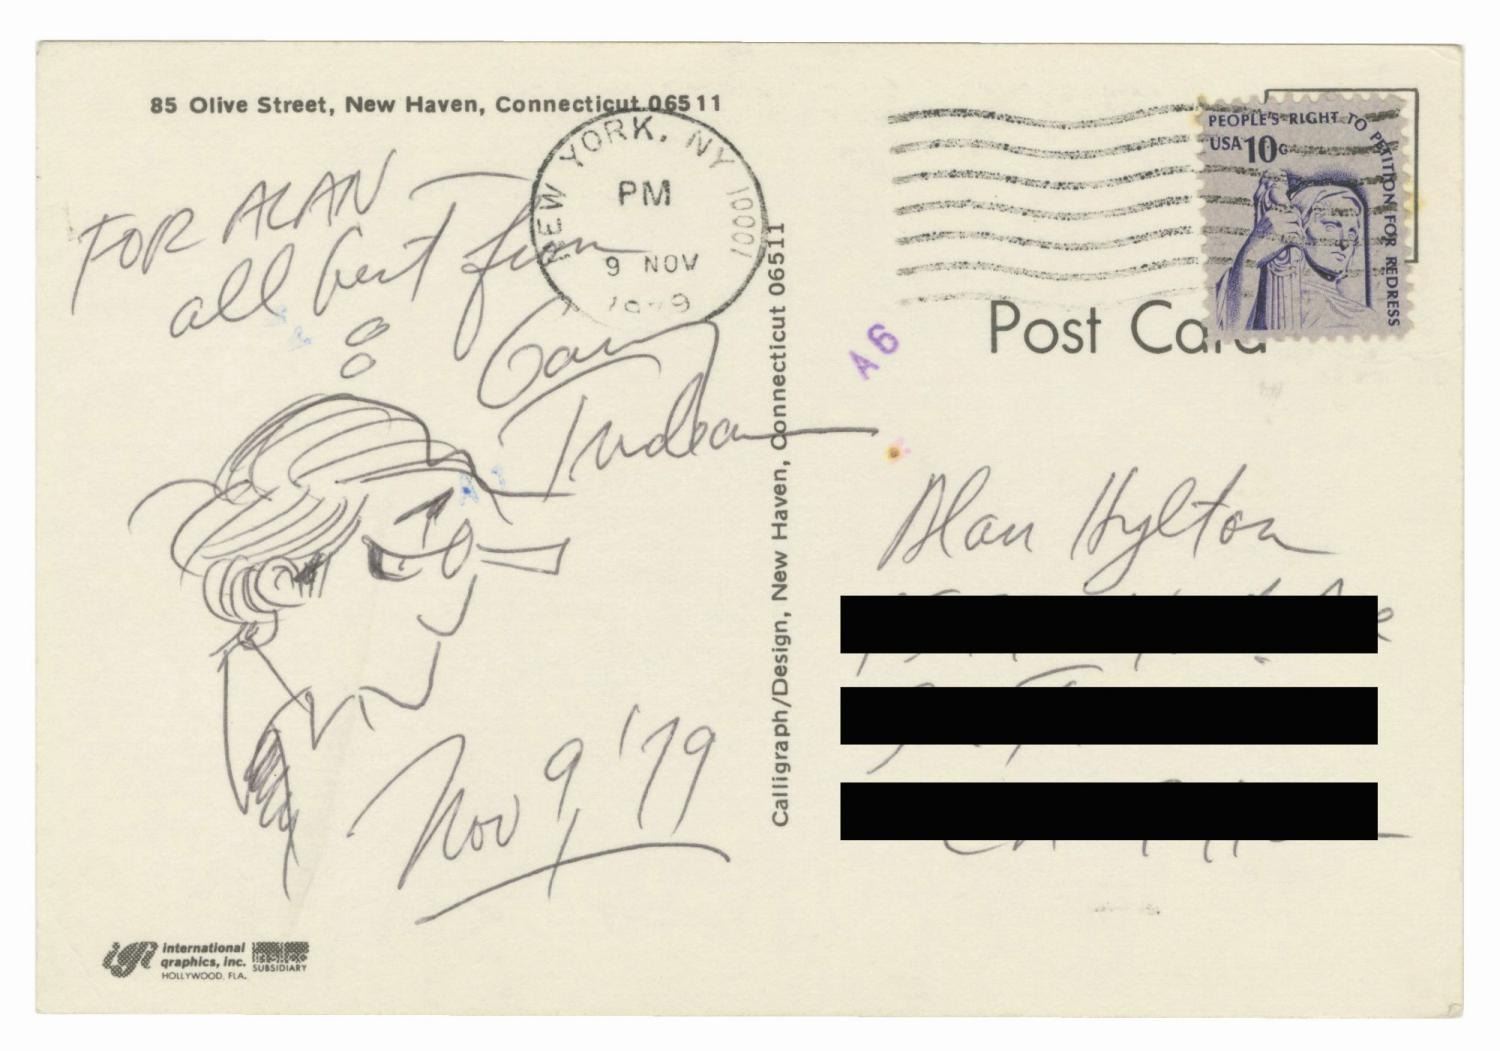 85 Olive Street, New Haven, Connecticut 06511
FOR ALAN —
all best from
Garry
Trudeau
Nov 9, '79
NEW YORK, NY 10001
PM
9 NOV
1979
Calligraph/Design, New Haven, Connecticut 06511
PEOPLE'S RIGHT TO PETITION FOR REDRESS
USA 10c
Post Card
A6
Alan Hylton
igi international
graphics, inc.
HOLLYWOOD, FLA.
SUBSIDIARY